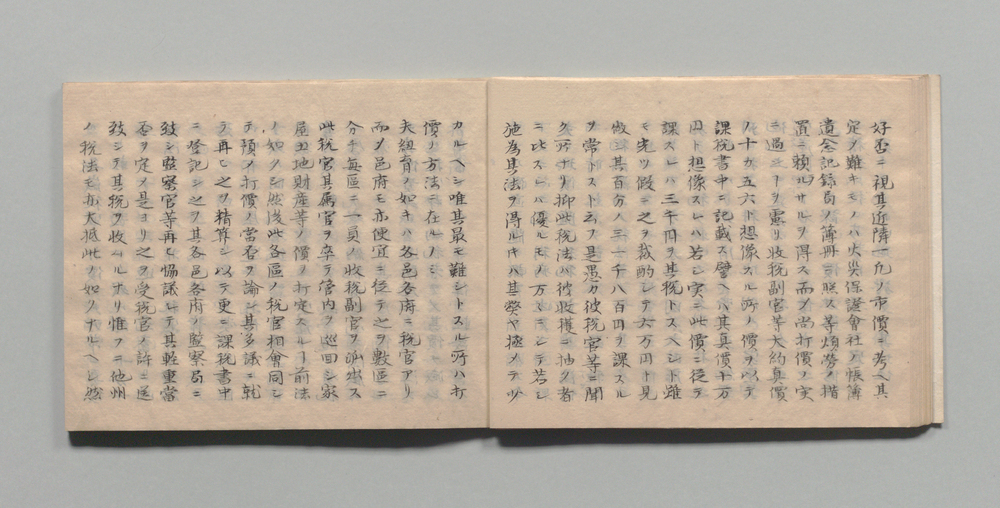 好否ニ視其近隣一九ノ市價ニ考ヘ其
定メ難キモノハ火災保證會社ノ帳簿
遺念記録局ノ簿冊ニ照ス等煩労ヲ措
置ニ頼ルサルヲ得ス而メ尚打價ノ実
ニ過ニヿヲ慮リ收税副官等大約真價
ノ十カ五六ト想像スル所ノ價ヲ以テ
課税書中ニ記載ス譬ヘハ其真價十万
円ト想像スレハ若シ実ニ此價ニ從テ
課スレハ三千円ヲ其税トスヘシト雖
モ先ツ假ニ之ヲ裁酌シテ六万円ト見
做シ其百分ノ三一千八百円ヲ課スル
ヲ常トスト云フ是愚カ彼税官等ニ聞
ク所ナリ抑此税法ハ彼收穫ニ抽ク者
ニ比スレハ優ルモノ万々ニシテ若シ
施為其法ヲ得ルキハ甚弊ヤ極メテ少
カルヘシ唯其最モ難シトスル所ハ打
價ノ方法ニ在ルノミ
夫紐育ノ如キハ各邑各府ニ税官アリ
而メ邑府モ亦便宜ニ位テ之ヲ數區ニ
分チ毎區ニ一員ノ收税副官ヲ派出ス
此税官其属官ヲ卒テ管内ヲ巡回シ家
屋土地財産等ノ價ヲ打定スルヿ前法
ノ如クシ然後此各區ノ税官相會同シ
テ頃ノ打價ノ當否ヲ論シ其多議ニ就
テ再ヒ之ヲ精算シ以テ更ニ課税書中
ニ登記シ之ヲ其各邑各府ノ監察局ニ
致シ監察官等再ヒ恊議シテ其軽重當
否ヲ定メ是ヨリ之ヲ受税官ノ許ニ送
致シテ其税ヲ收ムルナリ惟フニ他州
ノ税法モ亦大抵此ノ如クナルヘシ然